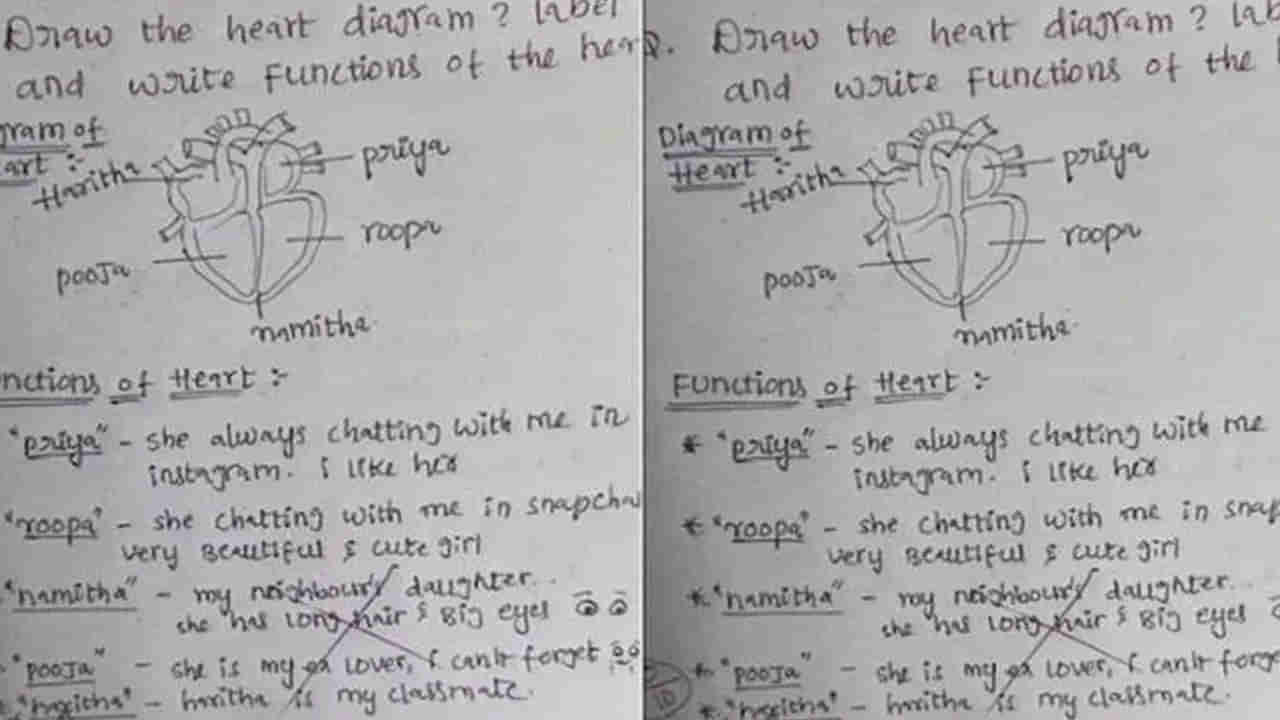 Draw the heart diagram ? label
and write Functions of the hear
gram of
art :-
Haritha
priya
roopa
pooja
namitha
nctions of Heart :-
"priya" - she always chatting with me in
instagram. i like her
"roopa" - she chatting with me in snapcha
very Beautiful & cute girl
"namitha" - my neighbour's daughter..
she has long hair & Big eyes
"pooja" - she is my ex lover, i can't forget
"haritha" - haritha is my classmate.
Q. Draw the heart diagram ? lab
and write Functions of the
Diagram of
Heart :-
Haritha
priya
roopa
pooja
namitha
Functions of Heart :-
* "priya" - she always chatting with me
instagram. i like her
* "roopa" - she chatting with me in snap
very Beautiful & cute girl
* "namitha" - my neighbour's daughter..
she has long hair & Big eyes
* "pooja" - she is my ex lover, i can't forge
* "haritha" - haritha is my classmate.
10